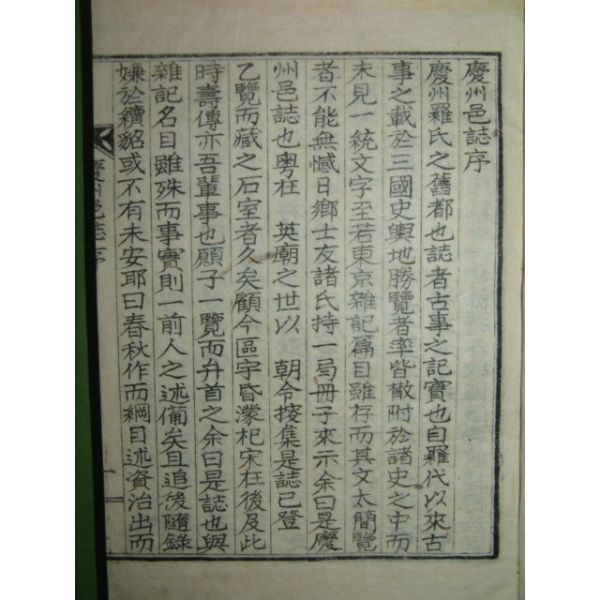 慶州邑誌序
慶州羅氏之舊都也誌者古事之記實也自羅代以來古
事之載於三國史輿地勝覽者率皆散附於諸史之中而
未見一統文字至若東京雜記篇目雖存而其文太簡覽
者不能無憾日鄕士友諸氏持一局冊子來示余曰是慶
州邑誌也粤在 英廟之世以 朝令按集是誌已登
乙覽而藏之石室者久矣顧今區宇昏濛杞宋在後及此
時壽傳亦吾輩事也願子一覽而弁首之余曰是誌也與
雜記名目雖殊而事實則一前人之述備矣且追後隨錄
嫌於續貂或不有未安耶曰春秋作而綱目述資治出而
慶州邑誌序
一